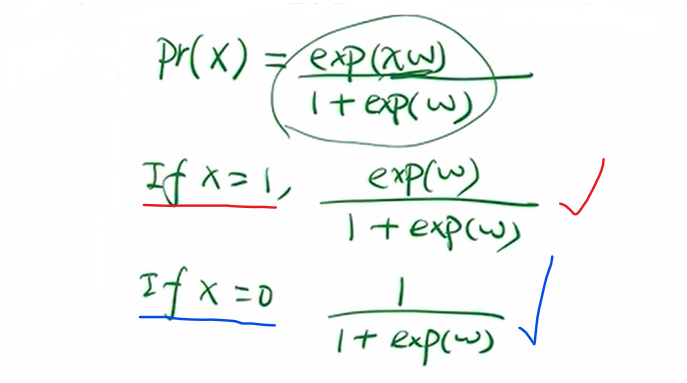 Pr(x) = exp(xw) / 1 + exp(w)
If x = 1, exp(w) / 1 + exp(w)
If x = 0 1 / 1 + exp(w)